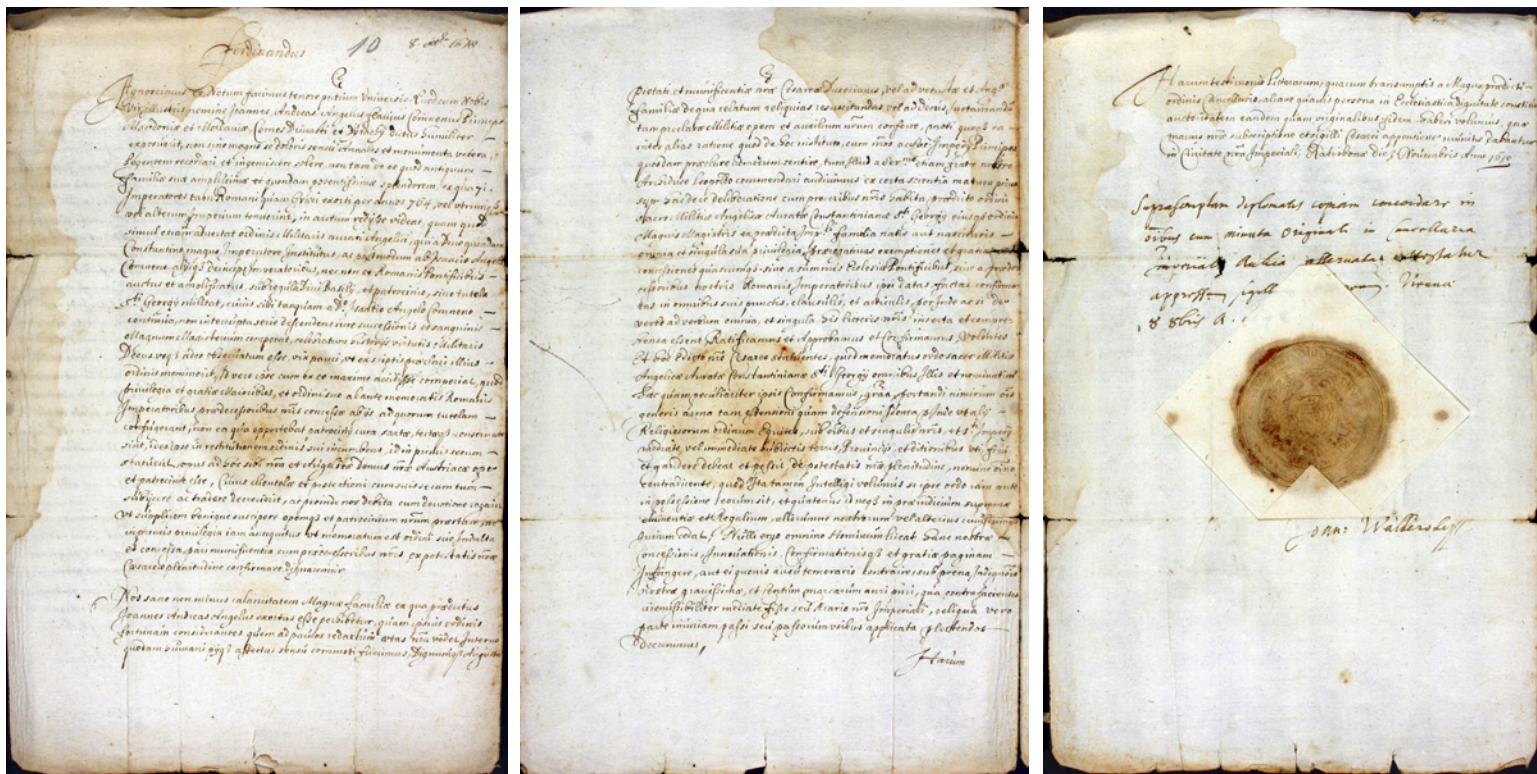 Ferdinandus 10
Agnoscimus et Notum facimus tenore
Vir Illustris nomine Joannes Andreas Angelus Flavius Comneaus Princeps
Macedoniæ et Moldaviæ, Comes humiliter
exposuerit, non sine magno se doloris sensu Annales et monumenta vetera
legentem recordari et ingemiscere solere, non tam de eo quod antiquum
familiæ suæ amplitudinis et quondam potentissimæ splendorem, ex qua 71
Imperatores tam Romani quam Græci exorti per annos 764, vel utrumque
vel alterum Imperium tenuerint, in arctum videat, quam quod
simul etiam ordinis Militaris aurati Angelici, qui a Divo quondam
Constantino magno Imperatore Institutus, ac postmodum ab Isaacio Angelo
Comneno Imperatoribus, nec non et Romanis Pontificibus
auctus et amplificatus, sub regula Divi Basilij, et patrocinio, sive tutela
Sti Georgij militat, cuius sibi tanquam ab Isaacio Angelo Comneno
continua, non interrupta serie descendenti iure successionis et sanguinis
Magnum Magisterium competat, virtutis Militaris
Decus
ordinis meminerit, id vero cum ex eo maxime accidisse comperiat, quod
privilegia et gratiæ Maioribus, et ordini suo a memoratis Romanis
Imperatoribus prædecessoribus nris concessæ ab ijs ad quorum tutelam
confugerant, non ea qua oppertebat patrocinij cura sartæ, tectæque conservatæ
sint, ideo ipse in restitutionem ordinis sui incumbens, id in primis secum
statuerit, opus ad hoc sibi nra et Domus nræ Austriacæ ope
et patrocinio esse, Cuius clientelæ et protectioni cum suis se cum tum
subijcere ac tradere decreverit, ac proinde nos debita cum devotione rogavit
ut supplicem benigne suscipere opemque et patrocinium nrum præstare, ac
inprimis privilegia iam antiquitus ut memoratum est ordini suo Indulta
et concessa, pari munificentia cum prædecessoribus nris, ex potestatis nræ
Cæsareæ plenitudine confirmare dignaremur.
Nos sane non minus calamitatem Magnæ familiæ ex qua prædictus
Joannes Andreas Angelus exortus esse perhibetur, quam ipsius ordinis
fortunam considerantes quem ad paucos redactum ætas nra videt, Interno
quodam humani affectus sensu commoti fuimus, Dignumque Augustæ
pietati et munificentiæ nræ Cæsareæ Duximus, vel ad vetustæ et Augæ
familiæ de qua relatum reliquias resuscitandas vel ad decus, instaurandæ
tam præclaræ Militiæ opem et auxilium nrum conferre,
inter alias ratione quod de hoc instituto, cum imos ac Sac. Imperij Principes
quosdam præclare admodum sentire, tum Illud a Sermo etiam fratre nostro
Archiduce Leopoldo commendari audivimus ex certa scientia maturo prius
super hac de re deliberatione cum proceribus nris habita, prædicto ordini
sacræ Militiæ Angelicæ Auratæ Constantinianæ Sti Georgij eiusque ordinis
Magnis Magistris ex prædicta Imp.li familia natis aut nascituris
omnia et singula sua privilegia, Prærogativas exemptiones et gratias
concessiones quascumque sive a summis Ecclesiæ Pontificibus, sive a prædecessoribus
nostris Romanis Imperatoribus ipsi datas factas confirmatas
in omnibus suis punctis, clausulis, et articulis, perinde ac si de
verbo ad verbum omnia, et singula his litteris nris inserta et comprehensa
essent Ratificamus et Approbamus et Confirmamus, Volentes
Et hoc Edicto nro Cæsareo statuentes, quod memoratus ordo sacer Militiæ
Angelicæ Auratæ Constantinianæ Sti Georgij omnibus Illis et nominatim
hac quam peculiariter ipsis Confirmamus, gra, portandi nimirum ois
generis arma tam offensioni quam defensioni idonea, si sic ut alij
Religiosorum ordinum Equites, sub oibus et singulis nris, et Sti Imperij
mediate, vel immediate subiectis terris, Provincijs, et ditionibus uti frui
et gaudere debeat et possit de potestatis nræ plenitudine, nemine oino
contradicente, quod Ita tamen Intelligi volumus si ipse ordo iam ante
in possessione eorum sit, et quatenus id neque in præiudicium supremæ
eminentiæ et Regalium, nostrorum vel alterius cuiusquam
quirum cedat. Nulli ergo omnino Hominum liceat hanc nostræ
Concessionis, Innovationis, Confirmationisque et gratiæ paginam
Infringere, aut ei quovis ausu temerario contraire, sub poena Indignationis
nostræ gravissimæ, et centum marcarum auri puri, qua contrafacientes
irremissibiliter mediate fisco seu Ærario nro Imperiali, reliqua vero
parte iniuriam passi seu passorum usibus applicata plectendos
Decernimus,
Harum
Harum testimonio Litterarum, quarum transumptis a Magno prædicti
ordinis Cancellario, aliave quavis persona in Ecclesiastica dignitate constituta
auctoritatem eandem quam originalibus fidem haberi volumus, quæ
manus nræ subscriptione et sigilli Cæsarei appensione munitis dabantur
in Civitate nra Imperiali Ratisbonæ die 5 Novembris Anno 1630
Suprascriptam diplomatis copiam concordare in
oibus cum minuta originali in Cancellaria
imperiali Aulica asservata attestatur
appressum sigillum Vienna
8 8bris A.